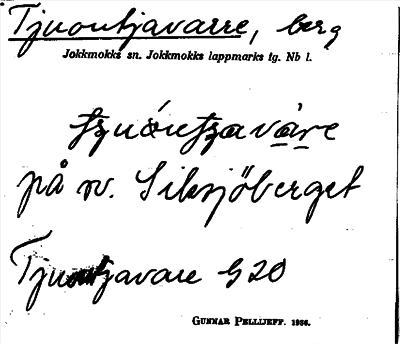 Tjuontjavarre, berg
Jokkmokks sn. Jokkmokks lappmarks tg. Nb l.
på sv. Siksjöberget
Tjuontjavare G20
GUNNAR PELLIJEFF. 1956.